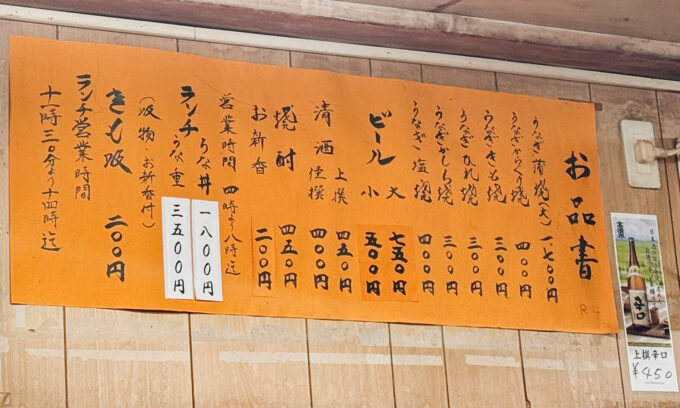 お品書
うなぎ蒲焼(大) 一、七〇〇円
うなぎからくり焼 四〇〇円
うなぎきも焼 三〇〇円
うなぎひれ焼 三〇〇円
うなぎかしら焼 三〇〇円
うなぎ塩焼 四〇〇円
ビール 大 七五〇円
小 五〇〇円
清酒 上撰 四五〇円
佳撰 四〇〇円
焼酎 四五〇円
お新香 二〇〇円
営業時間 四時より八時迄
ランチ うな丼 一八〇〇円
うな重 三五〇〇円
(吸物・お新香付)
きも吸 二〇〇円
ランチ営業時間
十一時三〇分より十四時迄
R4
辛口
上撰辛口
¥450